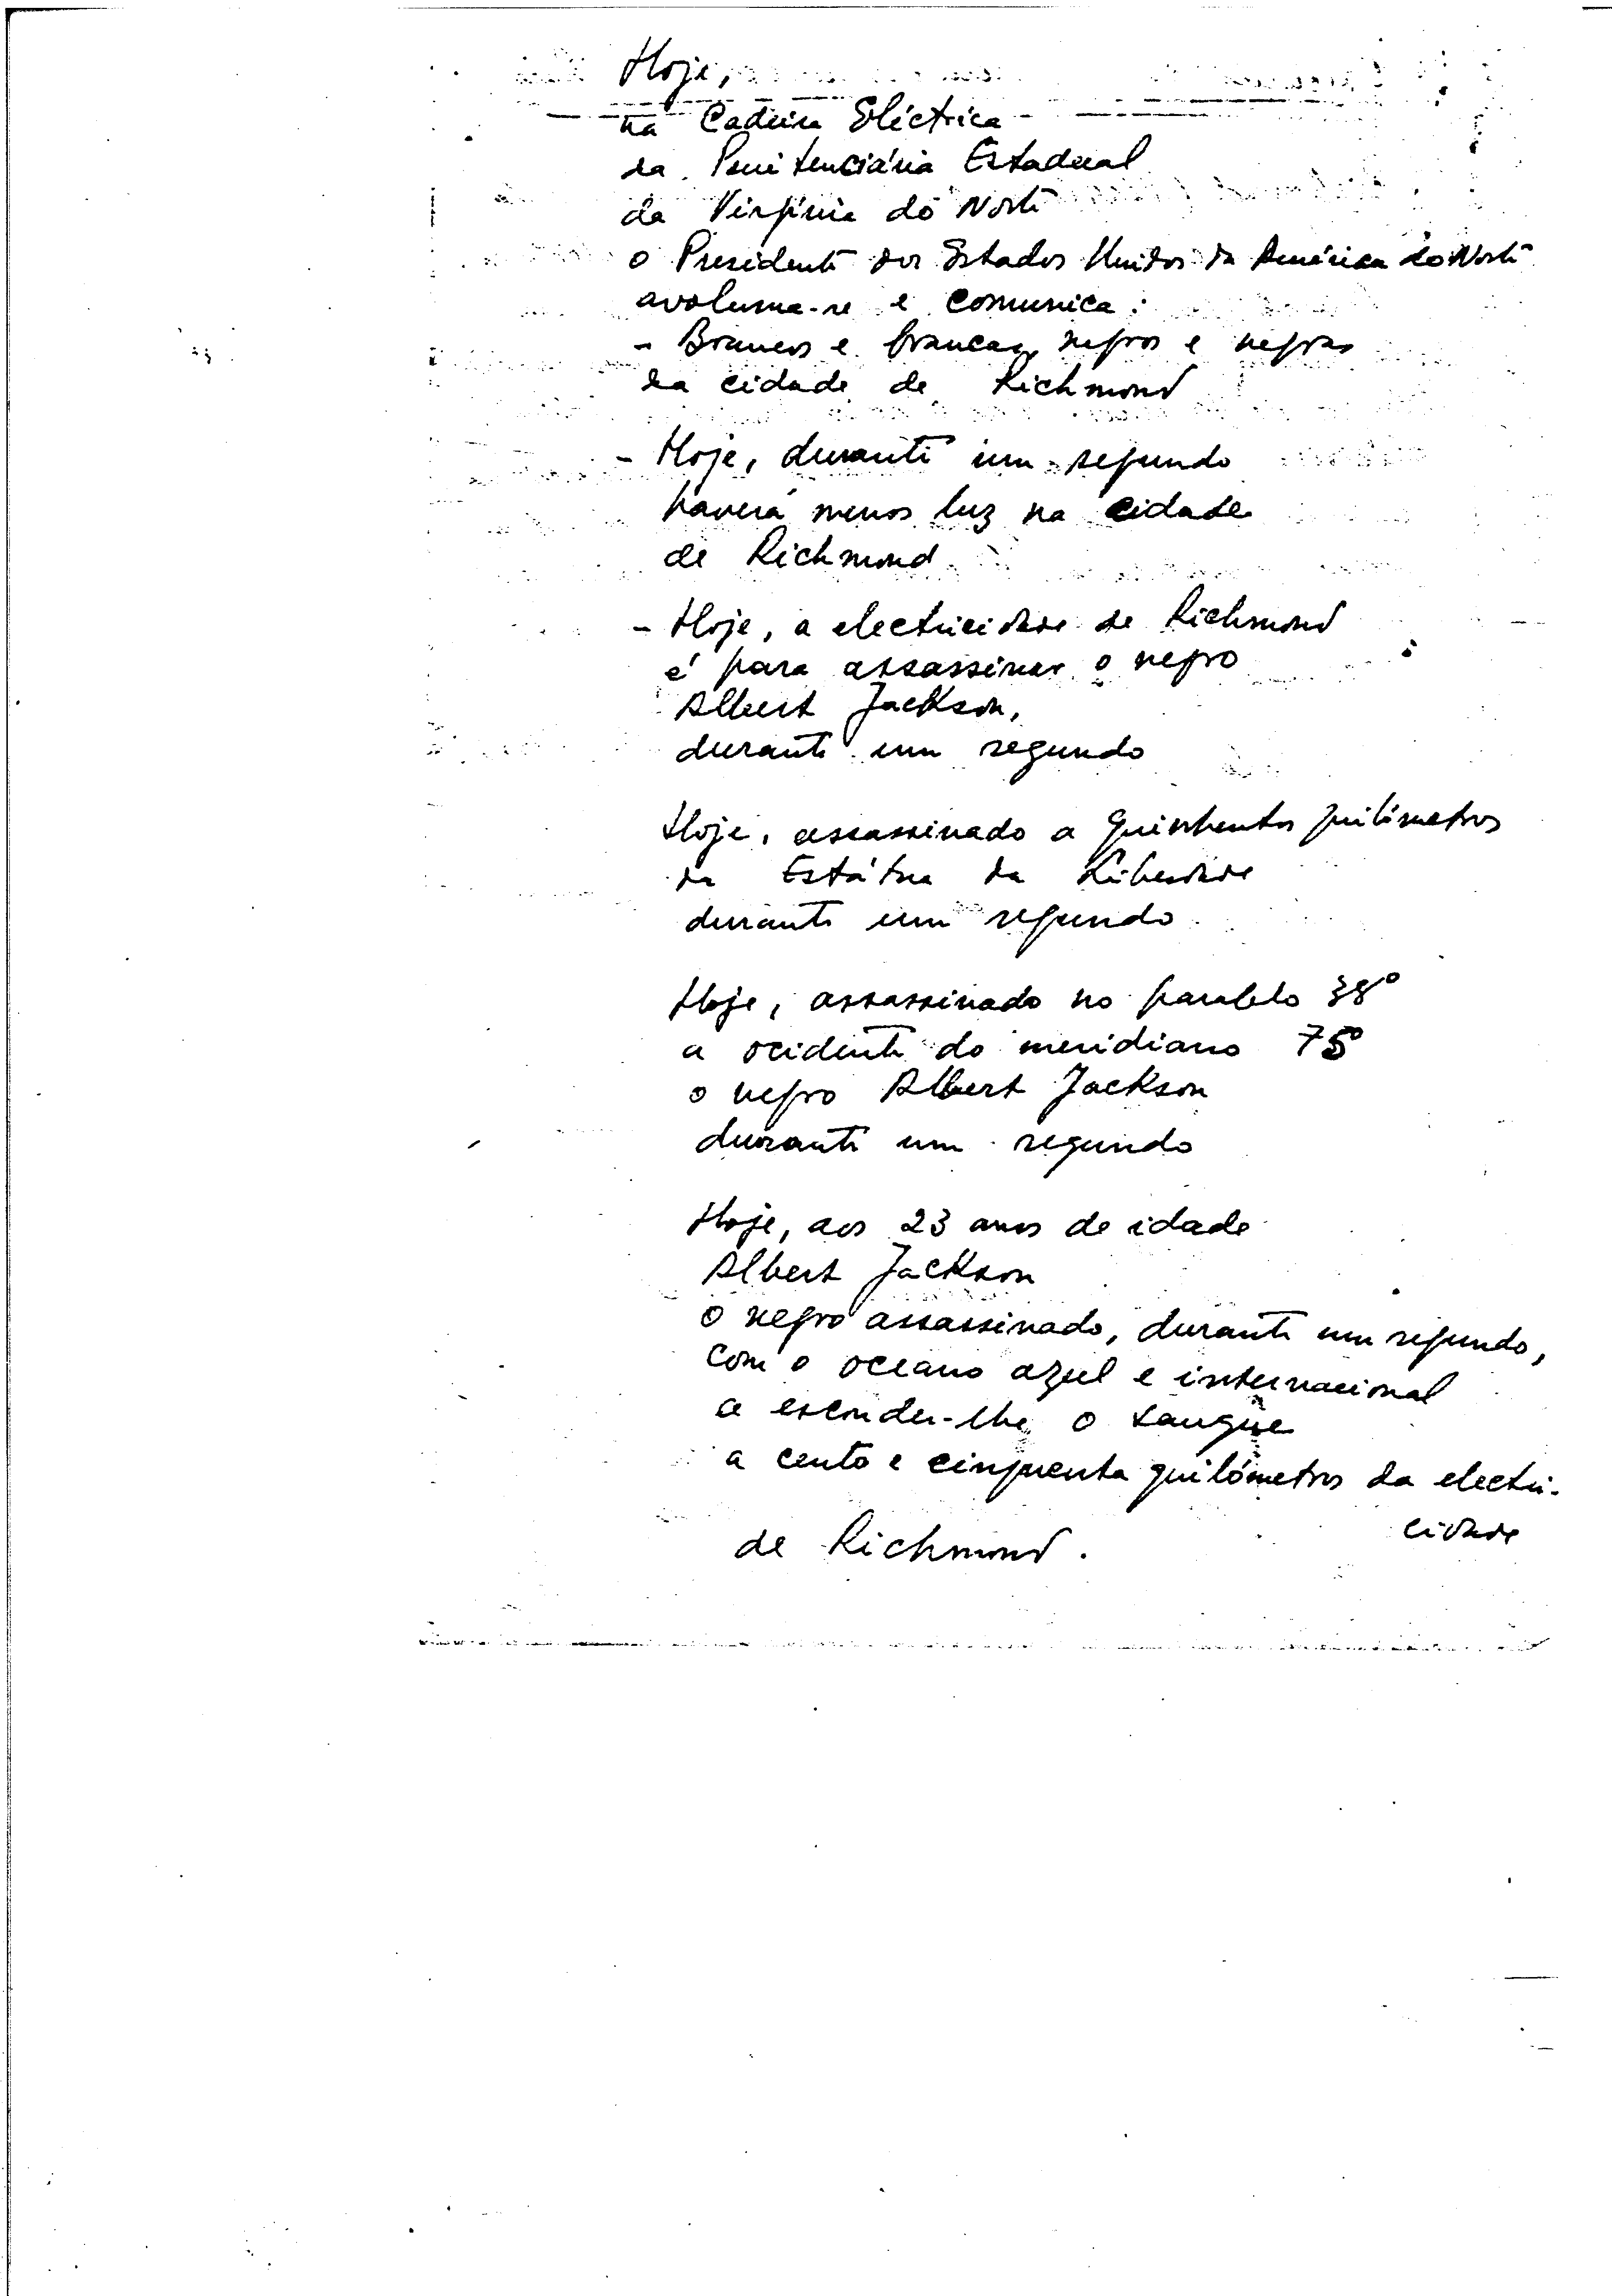 Hoje,
na Cadeira Eléctrica
da Penitenciária Estadual
da Virgínia do Norte
o Presidente dos Estados Unidos da América do Norte
avoluma-se e comunica:
- Brancos e brancas, negros e negras
da cidade de Richmond
- Hoje, durante um segundo
haverá menos luz na cidade
de Richmond
- Hoje, a electricidade de Richmond
é para assassinar o negro
Albert Jackson,
durante um segundo
Hoje, assassinado a quinhentos quilómetros
da Estátua da Liberdade
durante um segundo
Hoje, assassinado no paralelo 38º
a ocidente do meridiano 75º
o negro Albert Jackson
durante um segundo
Hoje, aos 23 anos de idade
Albert Jackson
o negro assassinado, durante um segundo,
com o oceano azul e internacional
a esconder-lhe o sangue
a cento e cinquenta quilómetros da electri-
cidade
de Richmond.